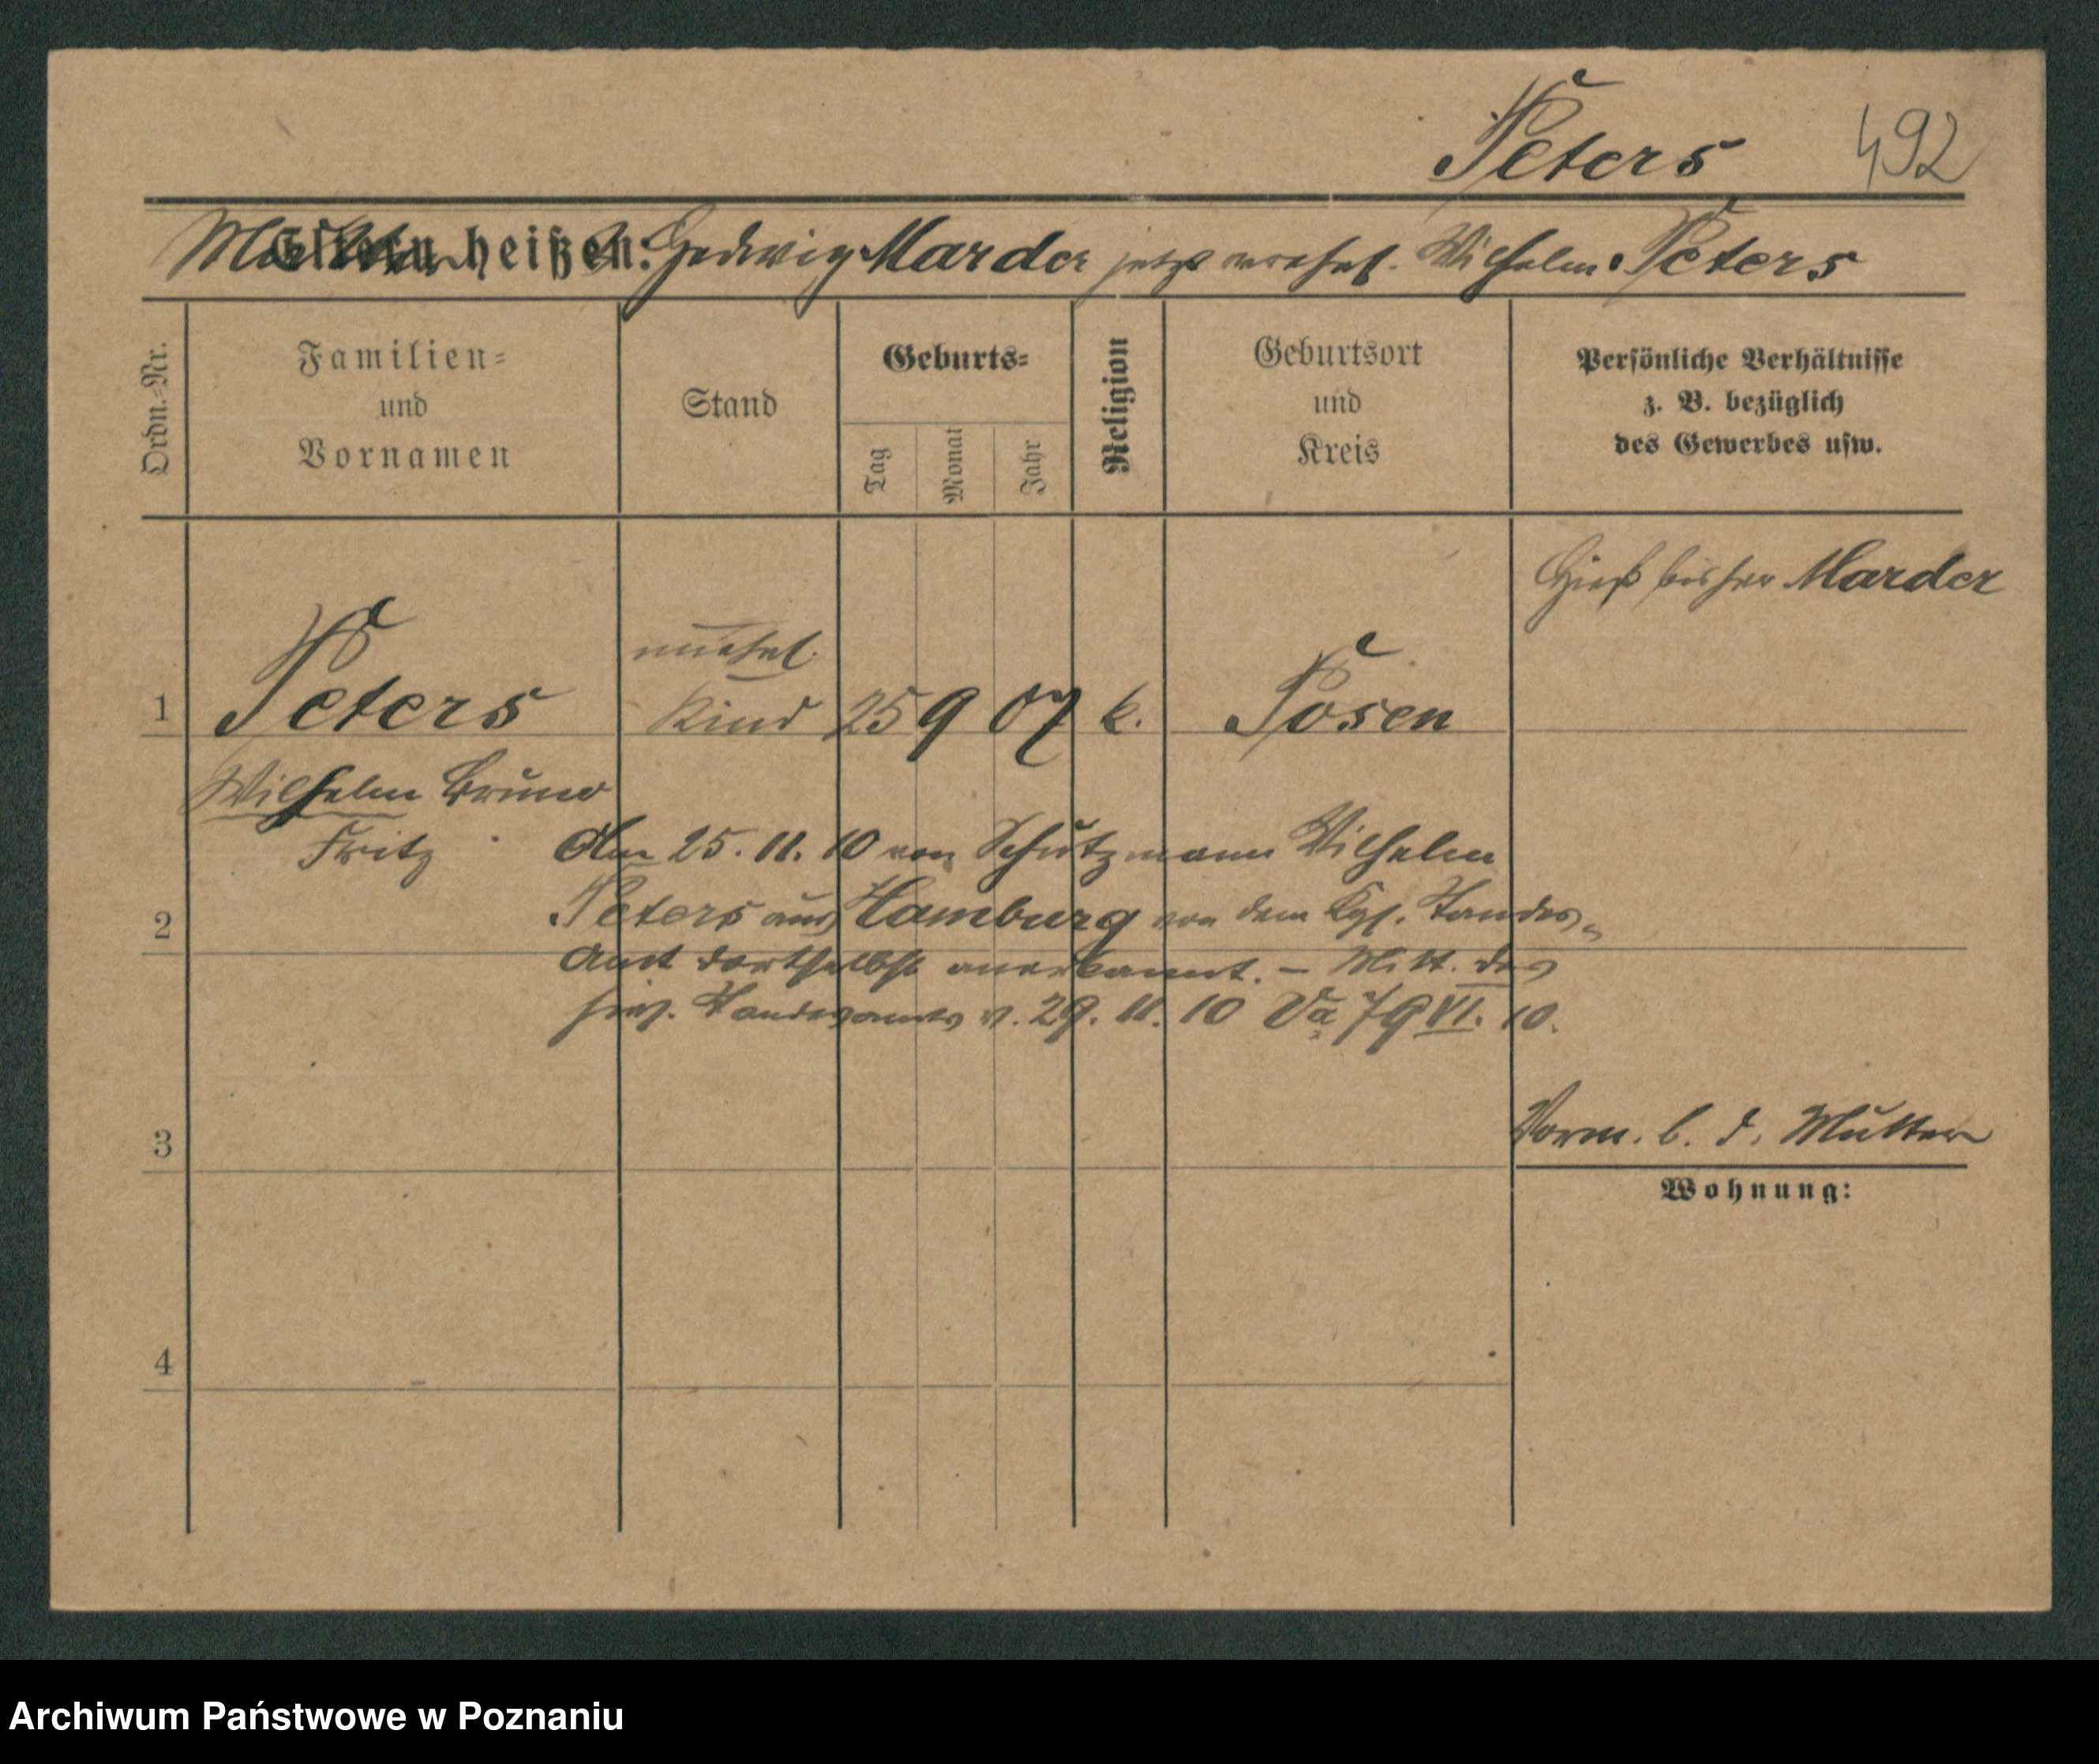 Peters 492
Eltern heißen: Mutter Hedwig Marder jetzt verehel. Wilhelm Peters
Ordn.-Nr.
Familien-
und
Vornamen
Stand
Geburts-
Tag
Monat
Jahr
Religion
Geburtsort
und
Kreis
Persönliche Verhältnisse
z. B. bezüglich
des Gewerbes usw.
Hieß bisher Marder
unehel.
1 Peters Kind 25 9 07 k. Posen
Wilhelm Bruno
Fritz
Am 25. 11. 10 von Schutzmann Wilhelm
2 Peters aus Hamburg vor dem Kgl. Standes-
Amt dortselbst anerkannt. – Mitt. des
hies. Standesamts v. 29. 11. 10 Va 79 VI. 10.
Vorm. b. d. Mutter
3
Wohnung:
4
Archiwum Państwowe w Poznaniu